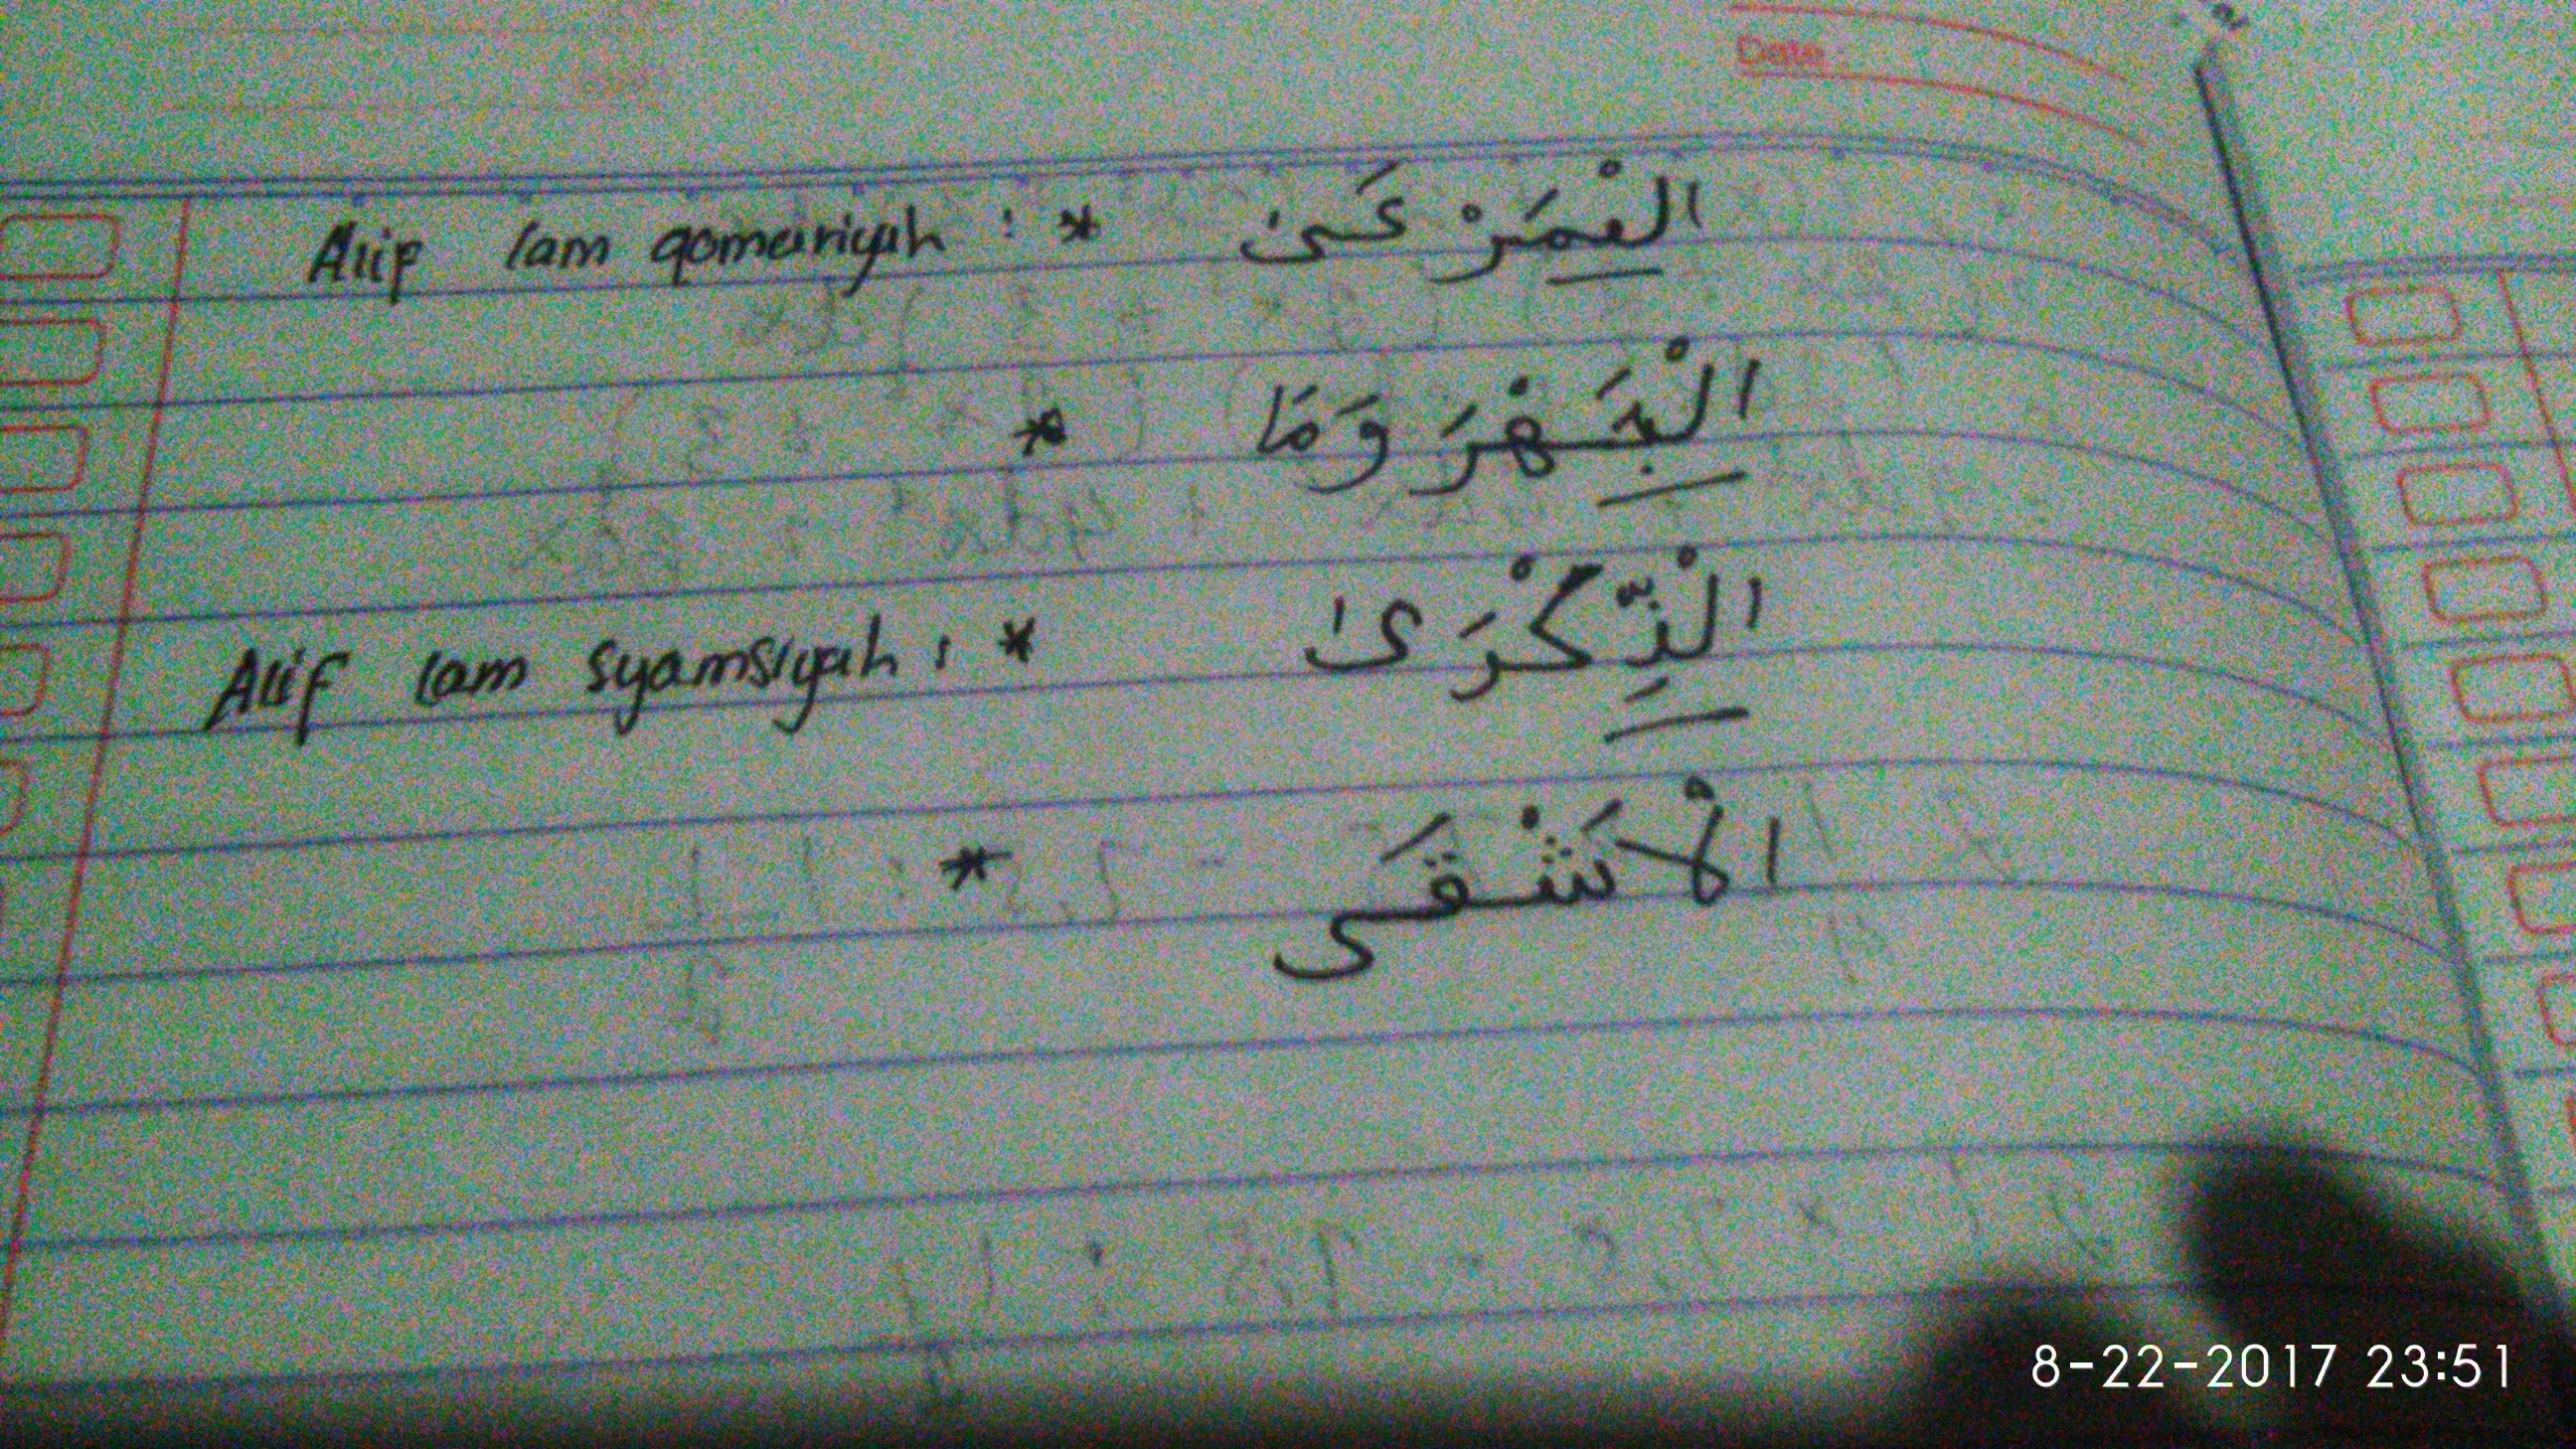 Date :
Alif lam qomariyah : *
* الْجَهْرَ وَمَا
Alif lam syamsiyah : * الْذِّكْرَىٰ
* الْاَشْقَى
8-22-2017 23:51